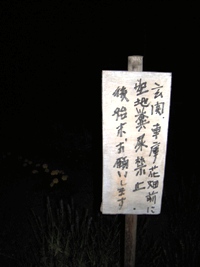 玄関 車庫 花畑前に
糞尿禁止
後始末、お願いします